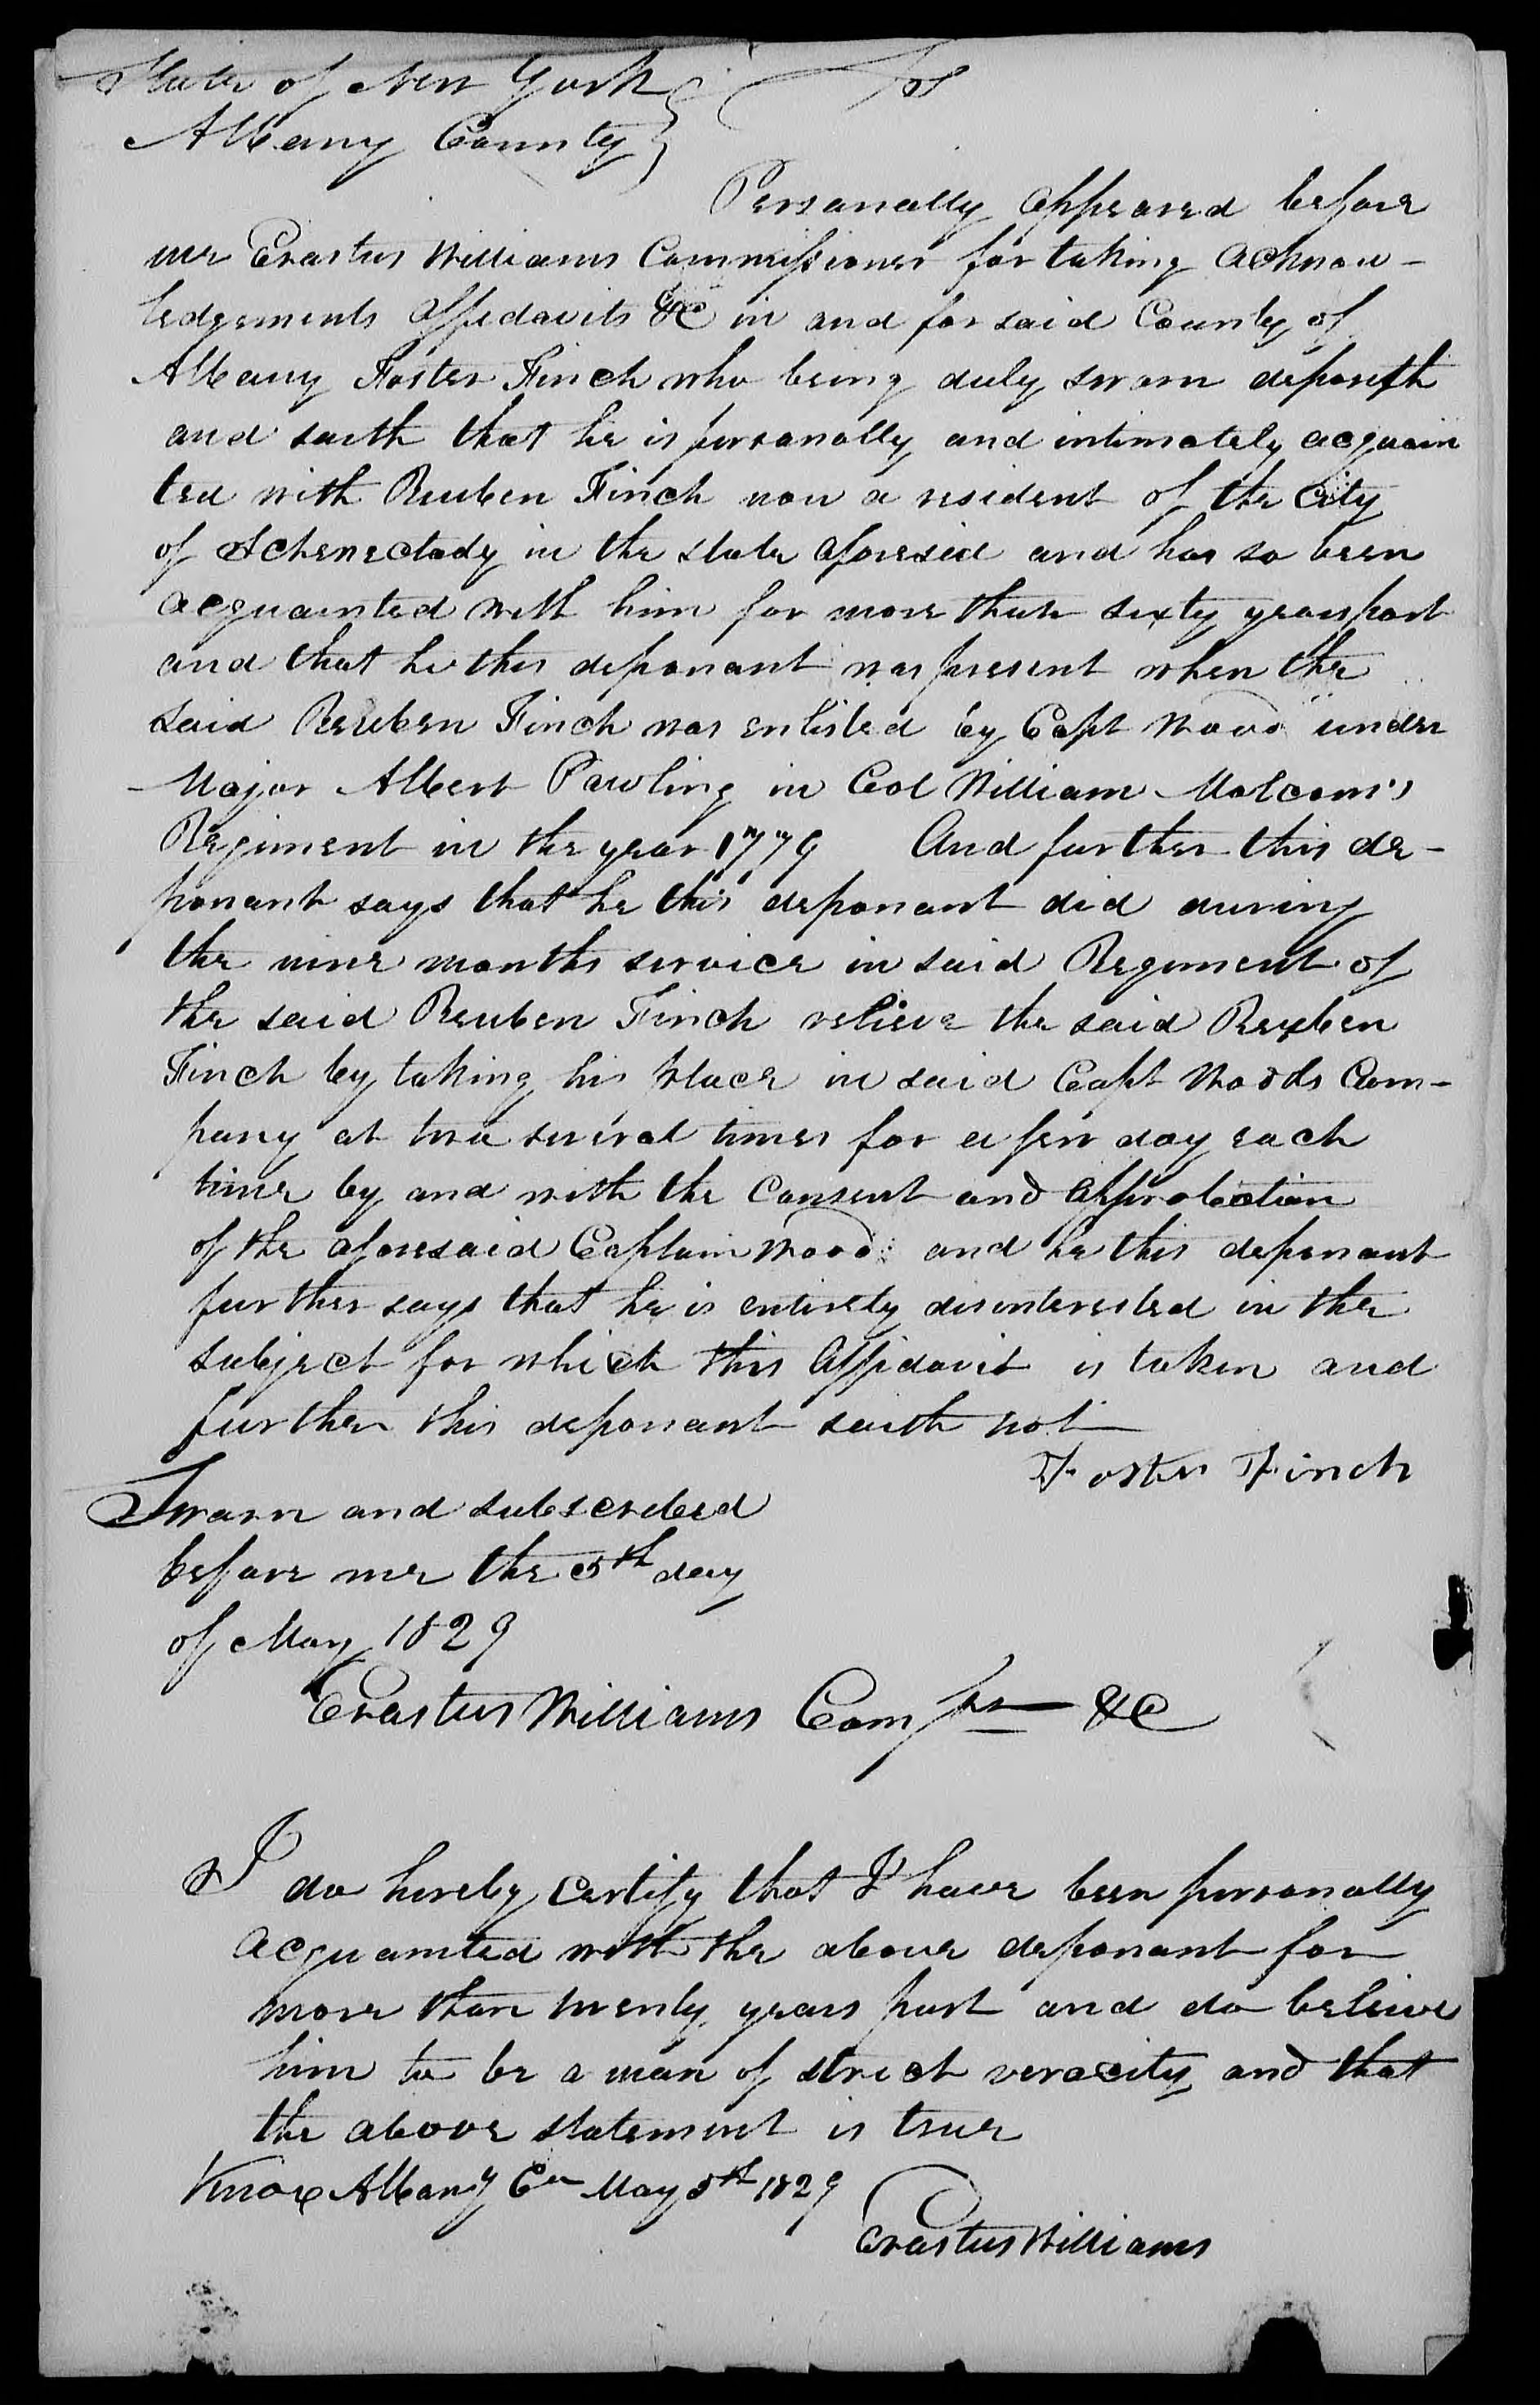 State of New York } ss
Albany County }
Personally appeared before
me Erastus Williams Commissioner for taking acknow-
ledgements affidavits &c in and for said County of
Albany Foster Finch who being duly sworn deposeth
and saith that he is personally and intimately acquain
ted with Reuben Finch now a resident of the City
of Schenectady in the state aforesaid and has so been
acquainted with him for more than sixty years past
and that he this deponant was present when the
said Reuben Finch was enlisted by Capt Wood under
Major Albert Pawling in Col William Malcom's
Regiment in the year 1779 And further this de-
ponant says that he this deponant did during
the nine months service in said Regiment of
the said Reuben Finch relieve the said Reuben
Finch by taking his place in said Capt Woods Com-
pany at two several times for a few day each
time by and with the consent and approbation
of the aforesaid Captain Wood and he this deponant
further says that he is entirely disinterested in the
subject for which this affidavit is taken and
further this deponant saith not
Foster Finch
Sworn and subscribed
before me the 5th day
of May 1829
Erastus Williams Comssr &c
I do hereby certify that I have been personally
acquainted with the above deponant for
more than twenty years past and do believe
him to be a man of strict veracity and that
the above statement is true
Knox Albany Co May 5th 1829
Erastus Williams